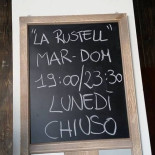 "LA RUSTELL"
MAR-DOM
19:00/23:30
LUNEDÌ
CHIUSO